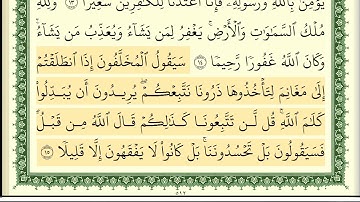 يُؤْمِنۢ بِٱللَّهِ وَرَسُولِهِۦ فَإِنَّآ أَعْتَدْنَا لِلْكَٰفِرِينَ سَعِيرًا ١٣ وَلِلَّهِ
مُلْكُ ٱلسَّمَٰوَٰتِ وَٱلْأَرْضِ ۚ يَغْفِرُ لِمَن يَشَآءُ وَيُعَذِّبُ مَن يَشَآءُ ۚ
وَكَانَ ٱللَّهُ غَفُورًا رَّحِيمًا ١٤ سَيَقُولُ ٱلْمُخَلَّفُونَ إِذَا ٱنطَلَقْتُمْ
إِلَىٰ مَغَانِمَ لِتَأْخُذُوهَا ذَرُونَا نَتَّبِعْكُمْ ۖ يُرِيدُونَ أَن يُبَدِّلُوا۟
كَلَٰمَ ٱللَّهِ ۚ قُل لَّن تَتَّبِعُونَا كَذَٰلِكُمْ قَالَ ٱللَّهُ مِن قَبْلُ ۖ
فَسَيَقُولُونَ بَلْ تَحْسُدُونَنَا ۚ بَلْ كَانُوا۟ لَا يَفْقَهُونَ إِلَّا قَلِيلًا ١٥
٥١٢